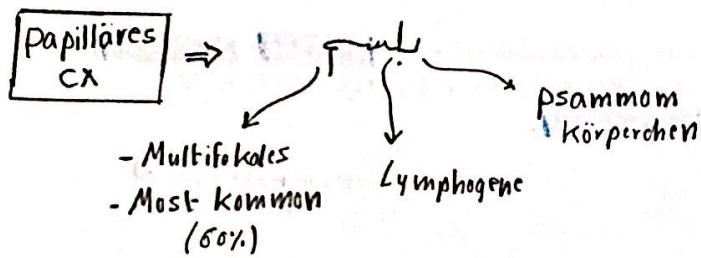 papilläres
CX
⇒
- Multifokales
- Most kommon
(60%)
Lymphogene
psammom
körperchen